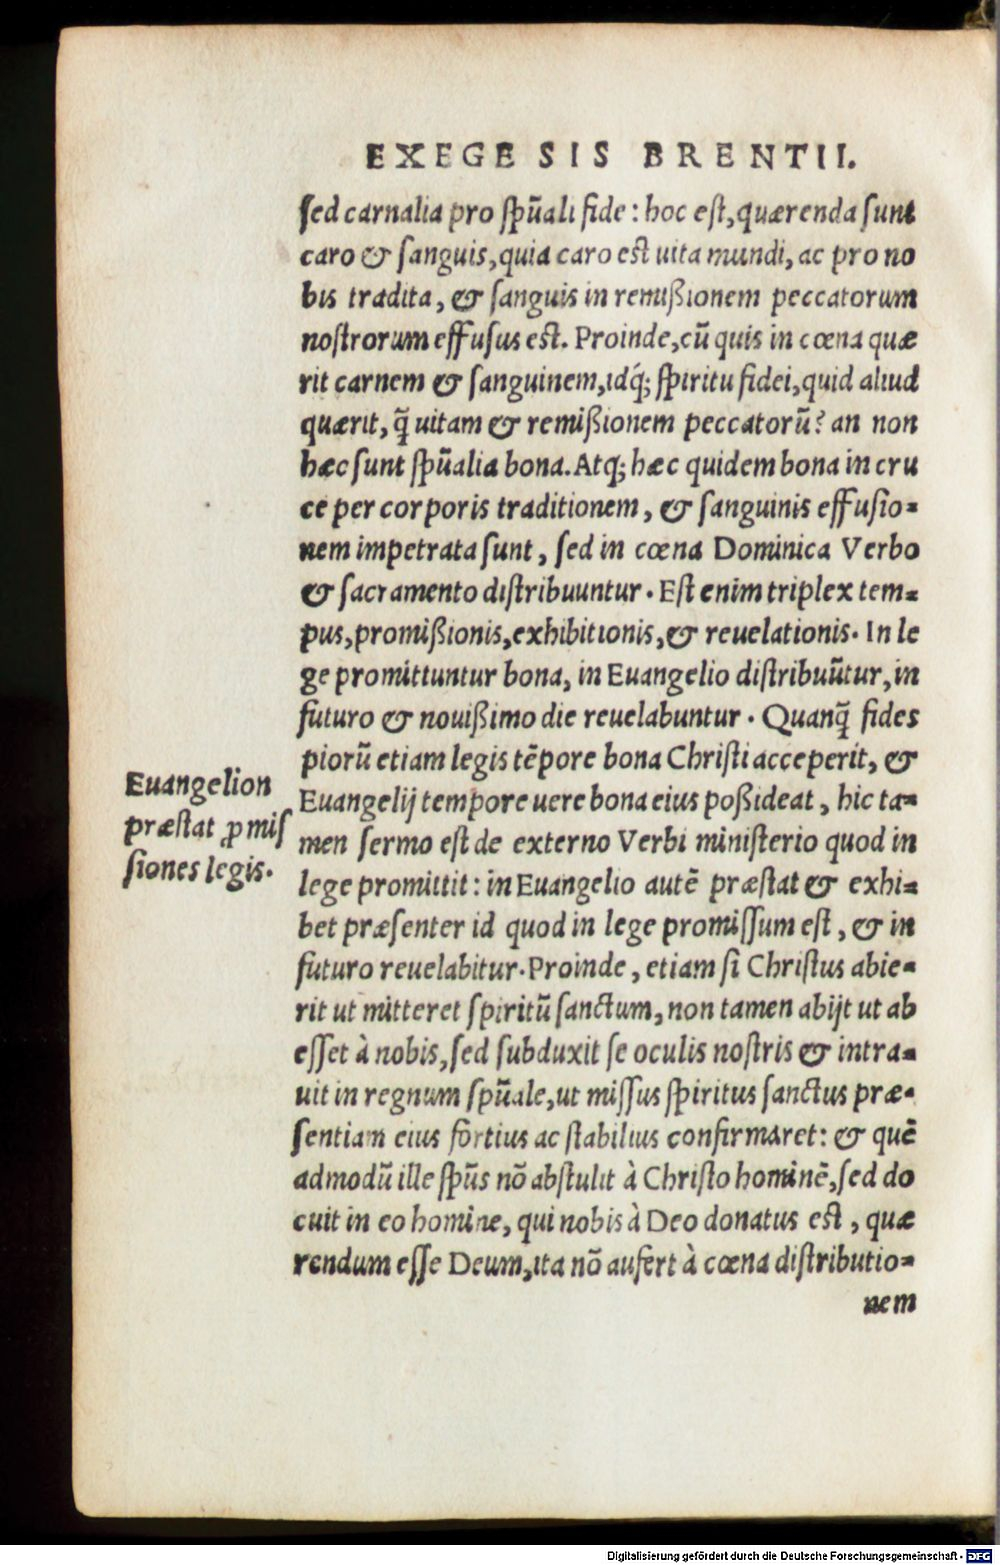 EXEGESIS BRENTII.
ſed carnalia pro ſpūali fide: hoc eſt, quærenda ſunt
caro & ſanguis, quia caro est uita mundi, ac pro no
bis tradita, & ſanguis in remißionem peccatorum
noſtrorum effuſus est. Proinde, cū quis in cœna quæ
rit carnem & ſanguinem, idq́; ſpiritu fidei, quid aliud
quærit, q̃ uitam & remißionem peccatorū? an non
hæc ſunt ſpūalia bona. Atq; hæc quidem bona in cru
ce per corporis traditionem, & ſanguinis effuſio=
nem impetrata ſunt, ſed in cœna Dominica Verbo
& ſacramento diſtribuuntur. Eſt enim triplex tem=
pus, promißionis, exhibitionis, & reuelationis. In le
ge promittuntur bona, in Euangelio diſtribuūtur, in
futuro & nouißimo die reuelabuntur. Quanq̃ fides
piorū etiam legis tēpore bona Chriſti acceperit, &
Euangelij tempore uere bona eius poßideat, hic ta=
men ſermo eſt de externo Verbi miniſterio quod in
lege promittit: in Euangelio autē præſtat & exhi=
bet præſenter id quod in lege promiſſum eſt, & in
futuro reuelabitur. Proinde, etiam ſi Chriſtus abie=
rit ut mitteret ſpiritū ſanctum, non tamen abijt ut ab
eſſet à nobis, ſed ſubduxit ſe oculis noſtris & intra=
uit in regnum ſpūale, ut miſſus ſpiritus ſanctus præ=
ſentiam eius fortius ac ſtabilius confirmaret: & quē
admodū ille ſpūs nō abſtulit à Chriſto hominē, ſed do
cuit in eo homine, qui nobis à Deo donatus est, quæ
rendum eſſe Deum, ita nō aufert à cœna diſtributio=
nem
Euangelion
præſtat ꝓmiſ
ſiones legis.
Digitalisierung gefördert durch die Deutsche Forschungsgemeinschaft - DFG